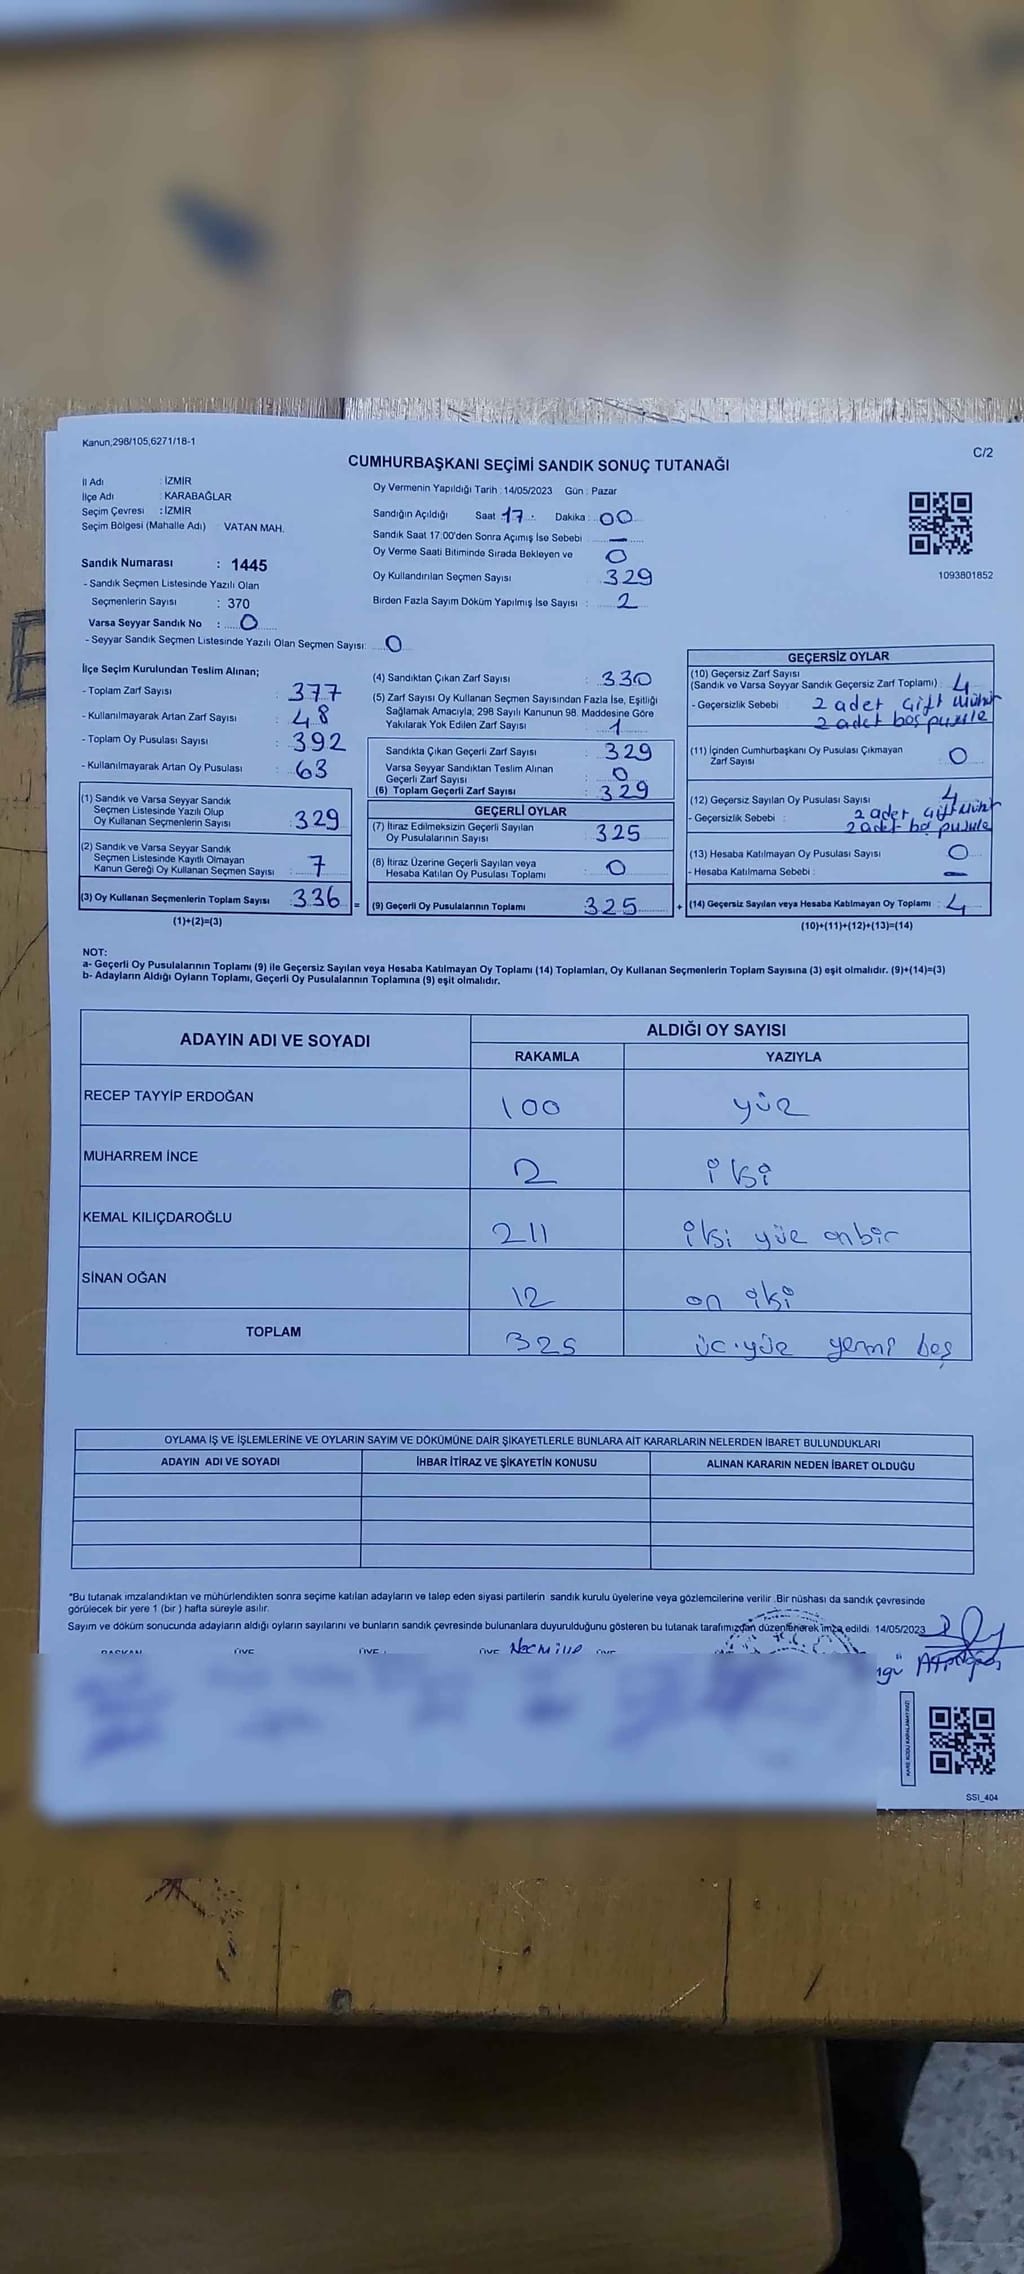 Kanun,298/105,6271/18-1
C/2
CUMHURBAŞKANI SEÇİMİ SANDIK SONUÇ TUTANAĞI
İl Adı : İZMİR
İlçe Adı : KARABAĞLAR
Seçim Çevresi : İZMİR
Seçim Bölgesi (Mahalle Adı) : VATAN MAH.
Sandık Numarası : 1445
- Sandık Seçmen Listesinde Yazılı Olan
Seçmenlerin Sayısı : 370
Varsa Seyyar Sandık No : 0
- Seyyar Sandık Seçmen Listesinde Yazılı Olan Seçmen Sayısı: 0
Oy Vermenin Yapıldığı Tarih : 14/05/2023 Gün : Pazar
Sandığın Açıldığı Saat 17 : Dakika : 00
Sandık Saat 17:00'den Sonra Açımış İse Sebebi : —
Oy Verme Saati Bitiminde Sırada Bekleyen ve 0
Oy Kullandırılan Seçmen Sayısı 329
Birden Fazla Sayım Döküm Yapılmış İse Sayısı : 2
1093801852
İlçe Seçim Kurulundan Teslim Alınan;
- Toplam Zarf Sayısı : 377
- Kullanılmayarak Artan Zarf Sayısı : 48
- Toplam Oy Pusulası Sayısı : 392
- Kullanılmayarak Artan Oy Pusulası : 63
(1) Sandık ve Varsa Seyyar Sandık
Seçmen Listesinde Yazılı Olup
Oy Kullanan Seçmenlerin Sayısı : 329
(2) Sandık ve Varsa Seyyar Sandık
Seçmen Listesinde Kayıtlı Olmayan
Kanun Gereği Oy Kullanan Seçmen Sayısı : 7
(3) Oy Kullanan Seçmenlerin Toplam Sayısı : 336 =
(1)+(2)=(3)
(4) Sandıktan Çıkan Zarf Sayısı : 330
(5) Zarf Sayısı Oy Kullanan Seçmen Sayısından Fazla İse, Eşitliği
Sağlamak Amacıyla; 298 Sayılı Kanunun 98. Maddesine Göre
Yakılarak Yok Edilen Zarf Sayısı : 1
Sandıkta Çıkan Geçerli Zarf Sayısı : 329
Varsa Seyyar Sandıktan Teslim Alınan
Geçerli Zarf Sayısı : 0
(6) Toplam Geçerli Zarf Sayısı : 329
GEÇERLİ OYLAR
(7) İtiraz Edilmeksizin Geçerli Sayılan
Oy Pusulalarının Sayısı : 325
(8) İtiraz Üzerine Geçerli Sayılan veya
Hesaba Katılan Oy Pusulası Toplamı : 0
(9) Geçerli Oy Pusulalarının Toplamı : 325 +
GEÇERSİZ OYLAR
(10) Geçersiz Zarf Sayısı
(Sandık ve Varsa Seyyar Sandık Geçersiz Zarf Toplamı) : 4
- Geçersizlik Sebebi : 2 adet çift mühür
2 adet boş pusula
(11) İçinden Cumhurbaşkanı Oy Pusulası Çıkmayan
Zarf Sayısı : 0
(12) Geçersiz Sayılan Oy Pusulası Sayısı : 4
- Geçersizlik Sebebi : 2 adet çift mühür
2 adet boş pusula
(13) Hesaba Katılmayan Oy Pusulası Sayısı : 0
- Hesaba Katılmama Sebebi : —
(14) Geçersiz Sayılan veya Hesaba Katılmayan Oy Toplamı : 4
(10)+(11)+(12)+(13)=(14)
NOT:
a- Geçerli Oy Pusulalarının Toplamı (9) ile Geçersiz Sayılan veya Hesaba Katılmayan Oy Toplamı (14) Toplamları, Oy Kullanan Seçmenlerin Toplam Sayısına (3) eşit olmalıdır. (9)+(14)=(3)
b- Adayların Aldığı Oyların Toplamı, Geçerli Oy Pusulalarının Toplamına (9) eşit olmalıdır.
ADAYIN ADI VE SOYADI
ALDIĞI OY SAYISI
RAKAMLA YAZIYLA
RECEP TAYYİP ERDOĞAN 100 yüz
MUHARREM İNCE 2 iki
KEMAL KILIÇDAROĞLU 211 iki yüz onbir
SİNAN OĞAN 12 on iki
TOPLAM 325 üç yüz yermi beş
OYLAMA İŞ VE İŞLEMLERİNE VE OYLARIN SAYIM VE DÖKÜMÜNE DAİR ŞİKAYETLERLE BUNLARA AİT KARARLARIN NELERDEN İBARET BULUNDUKLARI
ADAYIN ADI VE SOYADI İHBAR İTİRAZ VE ŞİKAYETİN KONUSU ALINAN KARARIN NEDEN İBARET OLDUĞU
*Bu tutanak imzalandıktan ve mühürlendikten sonra seçime katılan adayların ve talep eden siyasi partilerin sandık kurulu üyelerine veya gözlemcilerine verilir .Bir nüshası da sandık çevresinde
görülecek bir yere 1 (bir ) hafta süreyle asılır.
Sayım ve döküm sonucunda adayların aldığı oyların sayılarını ve bunların sandık çevresinde bulunanlara duyurulduğunu gösteren bu tutanak tarafımızdan düzenlenerek imza edildi. 14/05/2023
BAŞKAN ÜYE ÜYE ÜYE ÜYE
SSI_404